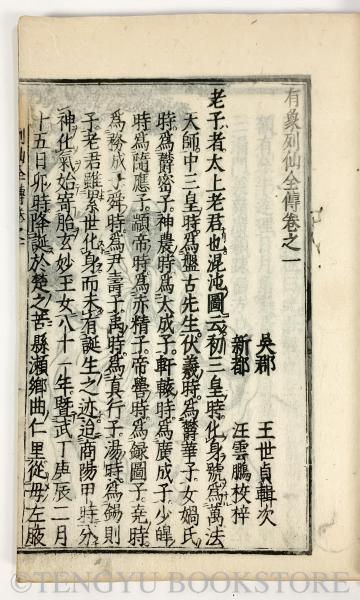 有象列仙全傳卷之一
吳郡 王世貞輯次
新都 汪雲鵬校梓
老子者太上老君也混沌圖云初三皇時化身號為萬法
天師中三皇時為盤古先生伏羲時為鬱華子女媧氏
時為鬱密子神農時為太成子軒轅時為廣成子少皥
時為隨應子顓帝時為赤精子帝嚳時為錄圖子堯時
為務成子舜時為尹壽子禹時為真行子湯時為錫則
子老君雖累世化身而未有誕生之迹迨商陽甲時分
神化氣始寄胎玄妙王女八十一年暨武丁庚辰二月
十五日卯時降誕於楚之苦縣瀨鄉曲仁里從母左腋
列仙全傳卷之一
©TENGYU BOOKSTORE